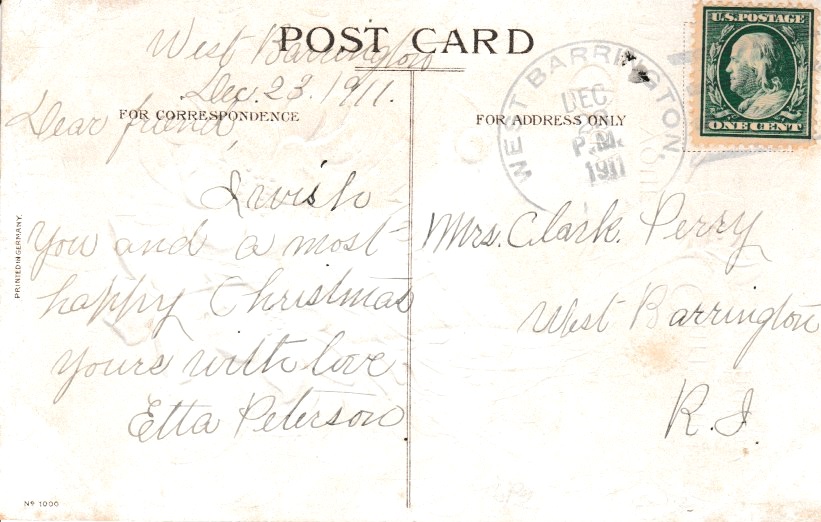 POST CARD
West Barrington
Dec. 23. 1911.
FOR CORRESPONDENCE
Dear friend,
I wish
You and a most
happy Christmas
yours with love
Etta Peterson
PRINTED IN GERMANY.
Nº 1000
FOR ADDRESS ONLY
Mrs. Clark. Perry
West Barrington
R.I.
WEST BARRINGTON,
DEC
P.M.
1911
U.S. POSTAGE
ONE CENT